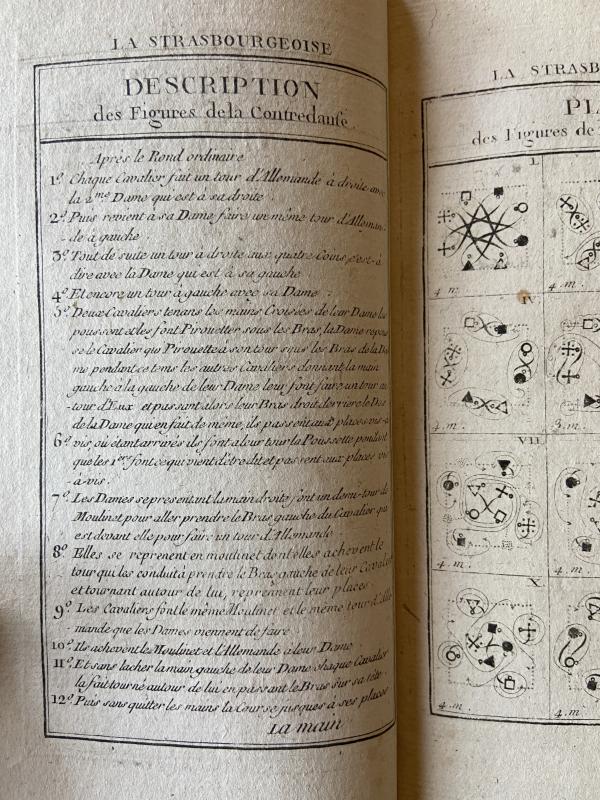 LA STRASBOURGEOISE
DESCRIPTION
des Figures de la Contredanse
Après le Rond ordinaire
1º. Chaque Cavalier fait un tour d'Allemande à droite avec
la 2.me Dame qui est à sa droite
2º. Puis revient à sa Dame faire un même tour d'Alleman-
-de à gauche
3º. Tout de suite un tour à droite aux quatre Coins c'est-à
dire avec la Dame qui est à sa gauche
4º. Et encore un tour à gauche avec sa Dame
5º. Deux Cavaliers tenans les mains Croisées de leur Dame les
poussent et les font Pirouetter sous les Bras, la Dame repous
se le Cavalier qui Pirouette à son tour sous les Bras de la Da
me pendant ce tems les autres Cavaliers donnant la main
gauche à la gauche de leur Dame leur font faire un tour au
-tour d'Eux et passant alors leur Bras droit derriere le Dos
de la Dame qui en fait de même, ils passent aux places vis-à
6º. vis, où étant arrivés ils font à leur tour la Poussette pendant
que les 1.ers font ce qui vient d'être dit et passent aux places vis
-à-vis.
7º. Les Dames se presentant la main droite font un demi-tour de
Moulinet pour aller prendre le Bras gauche du Cavalier qui
est devant elle pour faire un tour d'Allemande
8º. Elles se reprenent en moulinet dont elles achevent le
tour qui les conduit à prendre le Bras gauche de leur Cavalier
et tournant autour de lui, reprennent leur places
9º. Les Cavaliers font le même Moulinet et le même tour d'Alle
-mande que les Dames viennent de faire
10º. Ils achevent les Moulinet et l'Allemande à leur Dame
11º. Et sans lacher la main gauche de leur Dame chaque Cavalier
la fait tourné autour de lui en passant le Bras sur sa tête
12º. Puis sans quitter les mains la Course jusques à ses places
La main
LA STRASB
PLA
des Figures de
I.
4. m.
4. m.
IV
4. m.
3. m.
VII
4. m.
4. m.
X
4. m.
4. m.